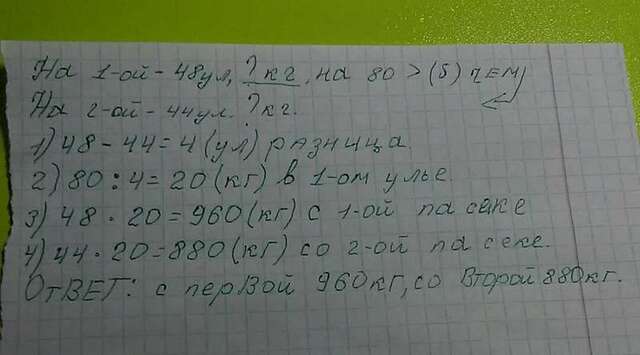 На 1-ой - 48ул, ? кг, на 80 > (б) чем
На 2-ой - 44ул. ? кг.
1) 48 - 44 = 4 (ул) разница.
2) 80 : 4 = 20 (кг) в 1-ом улье.
3) 48 · 20 = 960 (кг) с 1-ой пасеке
4) 44 · 20 = 880 (кг) со 2-ой пасеке.
Ответ: с первой 960кг, со второй 880кг.